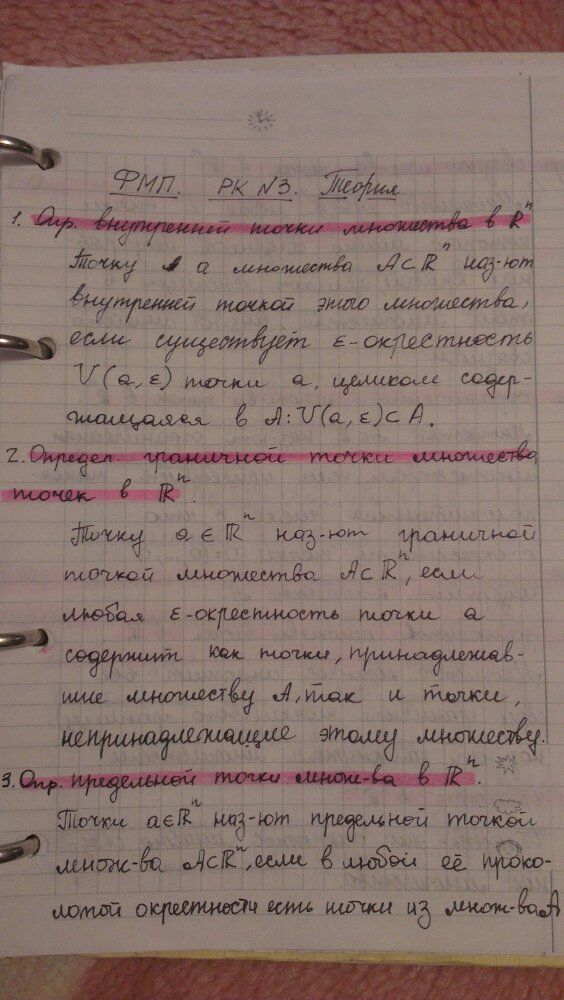 ФМП. РК №3. Теория
1. Опр. внутренней точки множества в ℝⁿ
Точку a множества A⊂ℝⁿ наз-ют
внутренней точкой этого множества,
если существует ε-окрестность
U(a,ε) точки a, целиком содер-
жащаяся в A: U(a,ε)⊂A.
2. Определ. граничной точки множества
точек в ℝⁿ.
Точку a∈ℝⁿ наз-ют граничной
точкой множества A⊂ℝⁿ, если
любая ε-окрестность точки a
содержит как точки, принадлежав-
шие множеству A, так и точки,
непринадлежащие этому множеству.
3. Опр. предельной точки множ-ва в ℝⁿ.
Точки a∈ℝⁿ наз-ют предельной точкой
множ-ва A⊂ℝⁿ, если в любой её проко-
лотой окрестности есть точки из множ-ва A